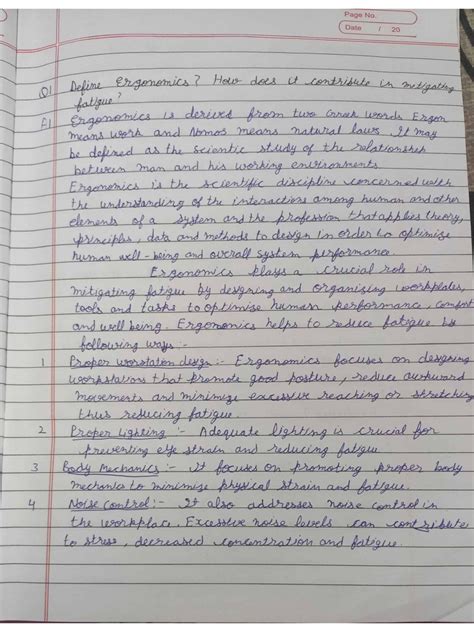 Page No.
Date / 20
Q1 Define Ergonomics? How does it contribute in mitigating
fatigue?
A1 Ergonomics is derived from two Greek words Ergon
means work and Nomos means natural laws. It may
be defined as the scientic study of the relationship
between man and his working environments.
Ergonomics is the scientific discipline concerned with
the understanding of the interactions among human and other
elements of a system and the profession that applies theory,
principles, data and methods to design in order to optimize
human well-being and overall system performance.
Ergonomics plays a crucial role in
mitigating fatigue by designing and organising workplaces,
tools and tasks to optimize human performance, comfort
and well being. Ergonomics helps to reduce fatigue by
following ways:-
1 Proper workstation design:- Ergonomics focuses on designing
workstations that promote good posture, reduce awkward
movements and minimize excessive reaching or stretching
thus reducing fatigue.
2 Proper Lighting:- Adequate lighting is crucial for
preventing eye strain and reducing fatigue
3 Body Mechanics:- It focuses on promoting proper body
mechanics to minimize physical strain and fatigue.
4 Noise Control:- It also addresses noise control in
the workplace. Excessive noise levels can contribute
to stress, decreased concentration and fatigue.